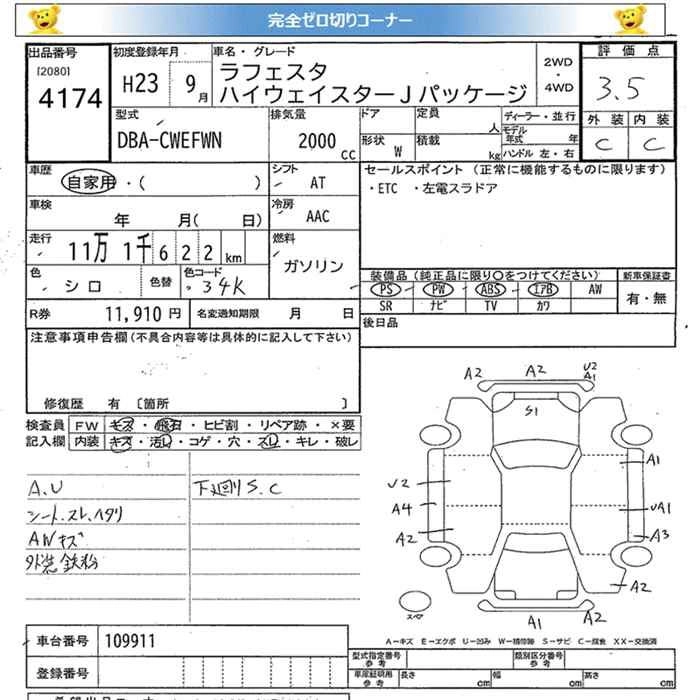 完全ゼロ切りコーナー
出品番号
[2080]
4174
初度登録年月
H23 9月
車名・グレード
ラフェスタ
ハイウェイスターJパッケージ
2WD
・
4WD
評価点
3.5
外装 内装
C C
型式
DBA-CWEFWN
排気量
2000 cc
ドア
定員
人
形状
W
積載
kg
ディーラー・並行
モデル年式 年
ハンドル 左・右
車歴
自家用・( )
シフト
AT
車検
年 月( 日)
冷房
AAC
走行
11万 1千 6 2 2 km
燃料
ガソリン
色
シロ
色替
色コード
34K
R券
11,910 円
名変通知期限 月 日
セールスポイント (正常に機能するものに限ります)
・ETC ・左電スラドア
装備品 (純正品に限り○をつけてください)
新車保証書
PS PW ABS エアB AW
SR ナビ TV カワ
有・無
後日品
注意事項申告欄 (不具合内容等は具体的に記入して下さい)
修復歴 有 [箇所 ]
検査員
記入欄
FW キズ・飛石・ヒビ割・リペア跡・×要
内装 キズ・汚レ・コゲ・穴・スレ・キレ・破レ
A.U
シート、スレ、ヘタリ
AWキズ
外装鉄粉
下廻りS.C
A2
A2
U2
A1
S1
A1
U2
A4
UA1
A2
A3
A2
A1
A2
スペア
A-キズ E-エクボ U-凹み W-補修跡 S-サビ C-腐食 XX-交換済
車台番号
109911
登録番号
型式指定番号
参考
類別区分番号
参考
車庫証明用
参考
長さ cm
幅 cm
高さ cm